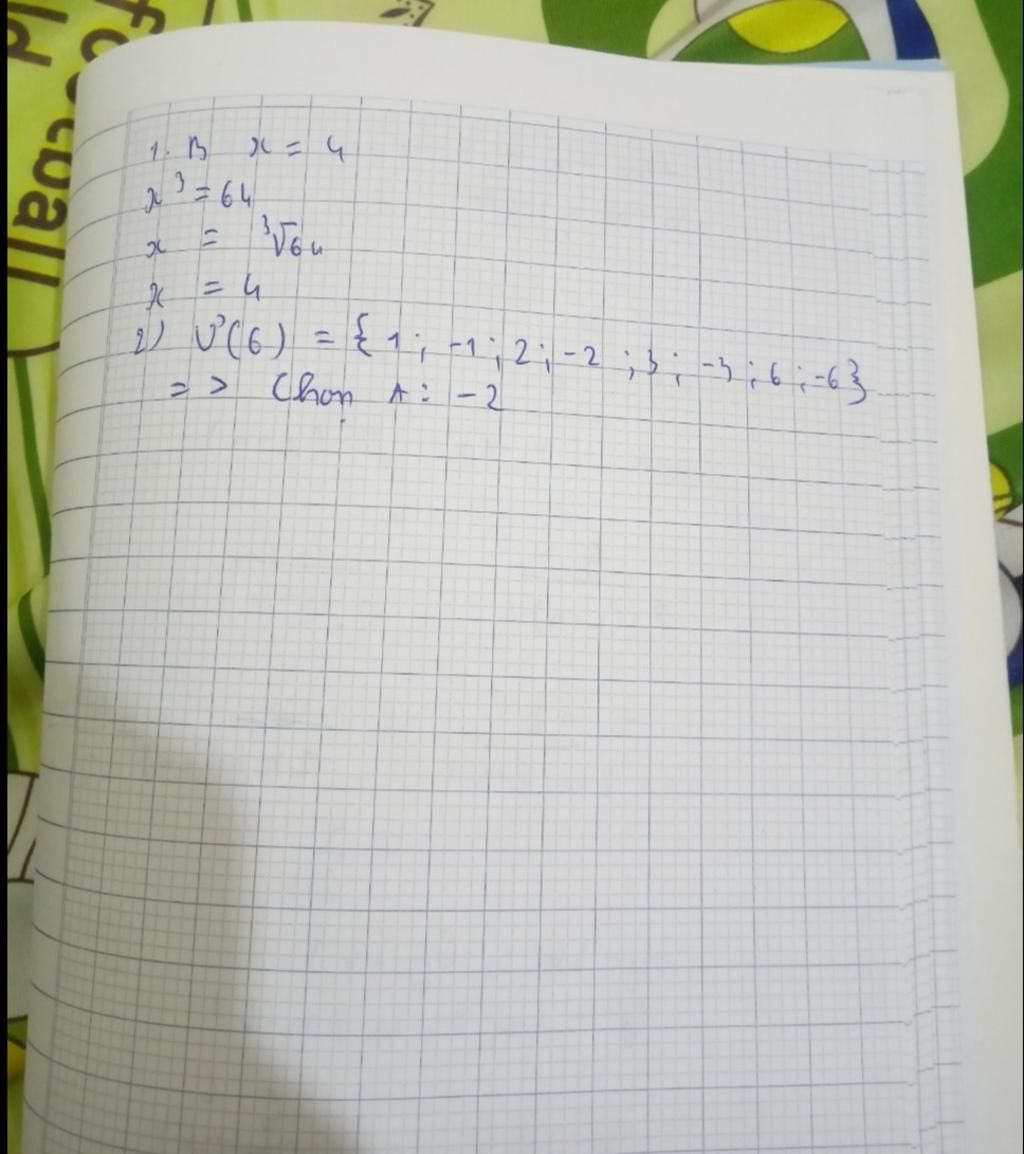 football
ld
1. B x = 4
x³ = 64
x = ³√64
x = 4
2) Ư(6) = {1; -1; 2; -2; 3; -3; 6; -6}
=> Chọn A: -2